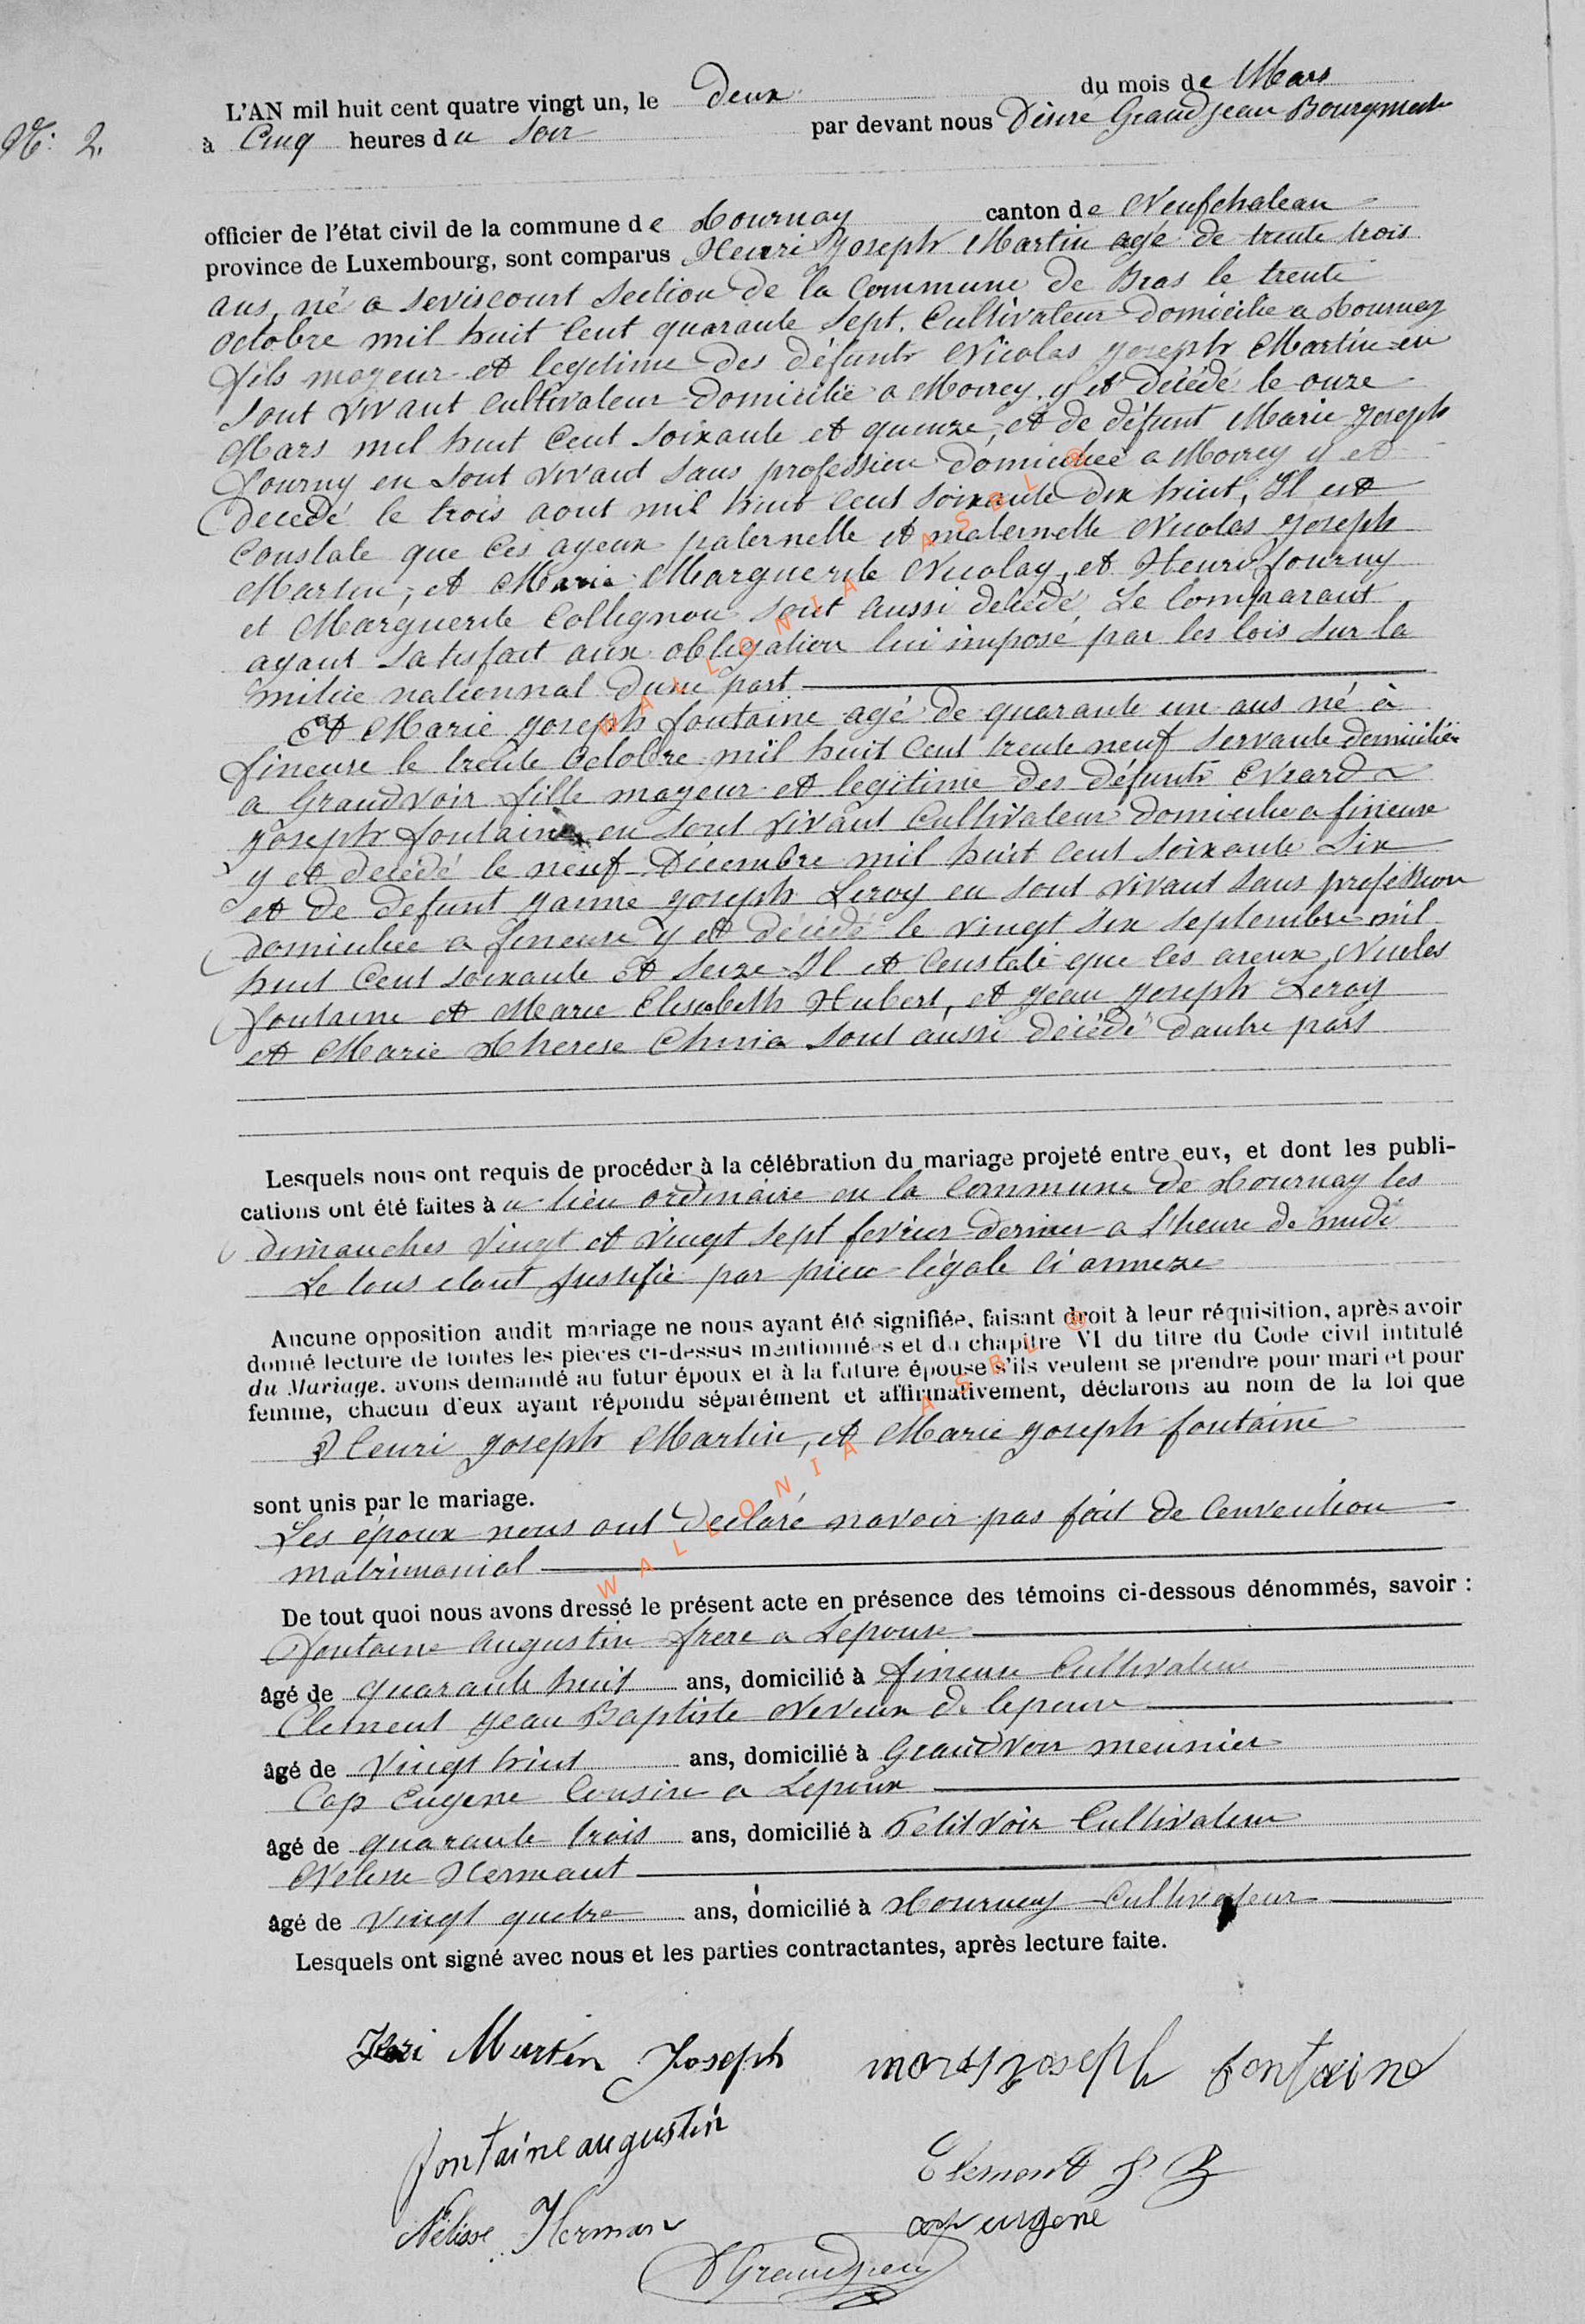 N° 2.
L'AN mil huit cent quatre vingt un, le deux du mois de Mars
à Cinq heures du Soir par devant nous Désiré Grandjean Bourgmestre
officier de l'état civil de la commune de Tournay canton de Neufchateau
province de Luxembourg, sont comparus Henri Joseph Martin agé de trente trois
ans, né a Seviscourt Section de la Commune de Bras le trente
octobre mil huit Cent quarante Sept. Cultivateur Domicilié a Tournay
fils mayeur et legitime des défunts Nicolas Joseph Martin en
Sont vivant cultivateur Domicilié a Moircy, y et décédé le onze
Mars mil huit Cent Soixante et quinze, et de défunt Marie Joseph
Fourny en Sont vivant Sans profession Domiciliée a Moircy y et
decedé le trois aout mil huit Cent Soixante dix huit, Il est
Constate que Ces ayeux paternelle et maternelle Nicolas Joseph
Martin, et Marie Marguerite Nicolay, et Henri fourny
et Marguerite Collignon Sont aussi décédé, Le Comparant
ayant Satisfait aux obligation lui imposé par les lois Sur la
milice nationnal dune part
Et Marie Joseph fontaine agé de quarante un ans né à
fineuse le trente Octobre mil huit Cent trente neuf Servante domiciliée
a Grandvoir fille mayeur et legitime des défunts Evrard
Joseph fontaine en Sont vivant Cultivateur Domicilié a fineuse
y et decédé le neuf Décembre mil huit Cent Soixante Six
et de defunt Janne Joseph Leroy en Sont vivant Sans profession
domiciliée a fineuse y et décédé le vingt Six Septembre mil
huit Cent Soixante et Seize Il et Constaté que les areux Nicolas
fontaine et Marie Elisabeth Hubert, et Jean Joseph Leroy
et Marie Therese Chinia Sont aussi décédé dautre part
Lesquels nous ont requis de procéder à la célébration du mariage projeté entre eux, et dont les publi-
cations ont été faites au lieu ordinaire en la Commune de Tournay les
dimanches vingt et vingt Sept fevrier dernier a l'heure de midi
Le tous étant justifié par piece légale Ci annexe
Aucune opposition audit mariage ne nous ayant été signifiée, faisant droit à leur réquisition, après avoir
donné lecture de toutes les pièces ci-dessus mentionnées et du chapitre VI du titre du Code civil intitulé
du Mariage. avons demandé au futur époux et à la future épouse s'ils veulent se prendre pour mari et pour
femme, chacun d'eux ayant répondu séparément et affirmativement, déclarons au nom de la loi que
Henri Joseph Martin, et Marie Joseph fontaine
sont unis par le mariage.
Les époux nous ont Déclaré navoir pas fait de Convention
matrimonial
De tout quoi nous avons dressé le présent acte en présence des témoins ci-dessous dénommés, savoir :
Fontaine Augustin frere a Lepouse
âgé de quarante huit ans, domicilié à fineuse Cultivateur
Clement Jean Baptiste Neveux de lepouse
âgé de vingt huit ans, domicilié à Grandvoir meunier
Cop Eugene Cousin a Lepoux
âgé de quarante trois ans, domicilié à Petitvoir Cultivateur
Nelisse Hermant
âgé de vingt quatre ans, domicilié à Tournay Cultivateur
Lesquels ont signé avec nous et les parties contractantes, après lecture faite.
Martin Joseph
joseph fontaine
fontaine augustin
Clement J. B
Nelisse Herman
cop eugene
D Grandjean
WALLONIA ASBL ®
WALLONIA ASBL ®